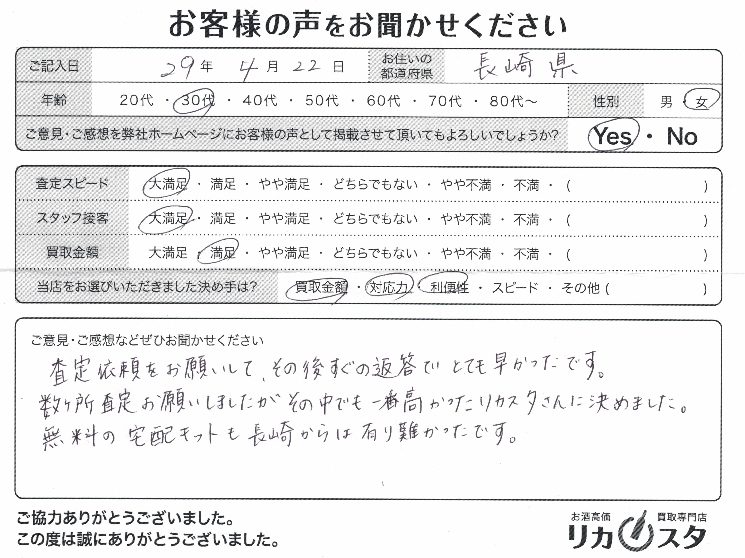 お客様の声をお聞かせください
ご記入日 29年 4月 22日 お住いの都道府県 長崎県
年齢 20代・30代・40代・50代・60代・70代・80代～ 性別 男・女
ご意見・ご感想を弊社ホームページにお客様の声として掲載させて頂いてもよろしいでしょうか? Yes・No
査定スピード 大満足・満足・やや満足・どちらでもない・やや不満・不満・( )
スタッフ接客 大満足・満足・やや満足・どちらでもない・やや不満・不満・( )
買取金額 大満足・満足・やや満足・どちらでもない・やや不満・不満・( )
当店をお選びいただきました決め手は? 買取金額・対応力・利便性・スピード・その他( )
ご意見・ご感想などぜひお聞かせください
査定依頼をお願いして、その後すぐの返答でとても早かったです。
数ヶ所査定お願いしましたがその中でも一番高かったリカスタさんに決めました。
無料の宅配キットも長崎からは有り難かったです。
ご協力ありがとうございました。
この度は誠にありがとうございました。
お酒高価 買取専門店
リカスタ